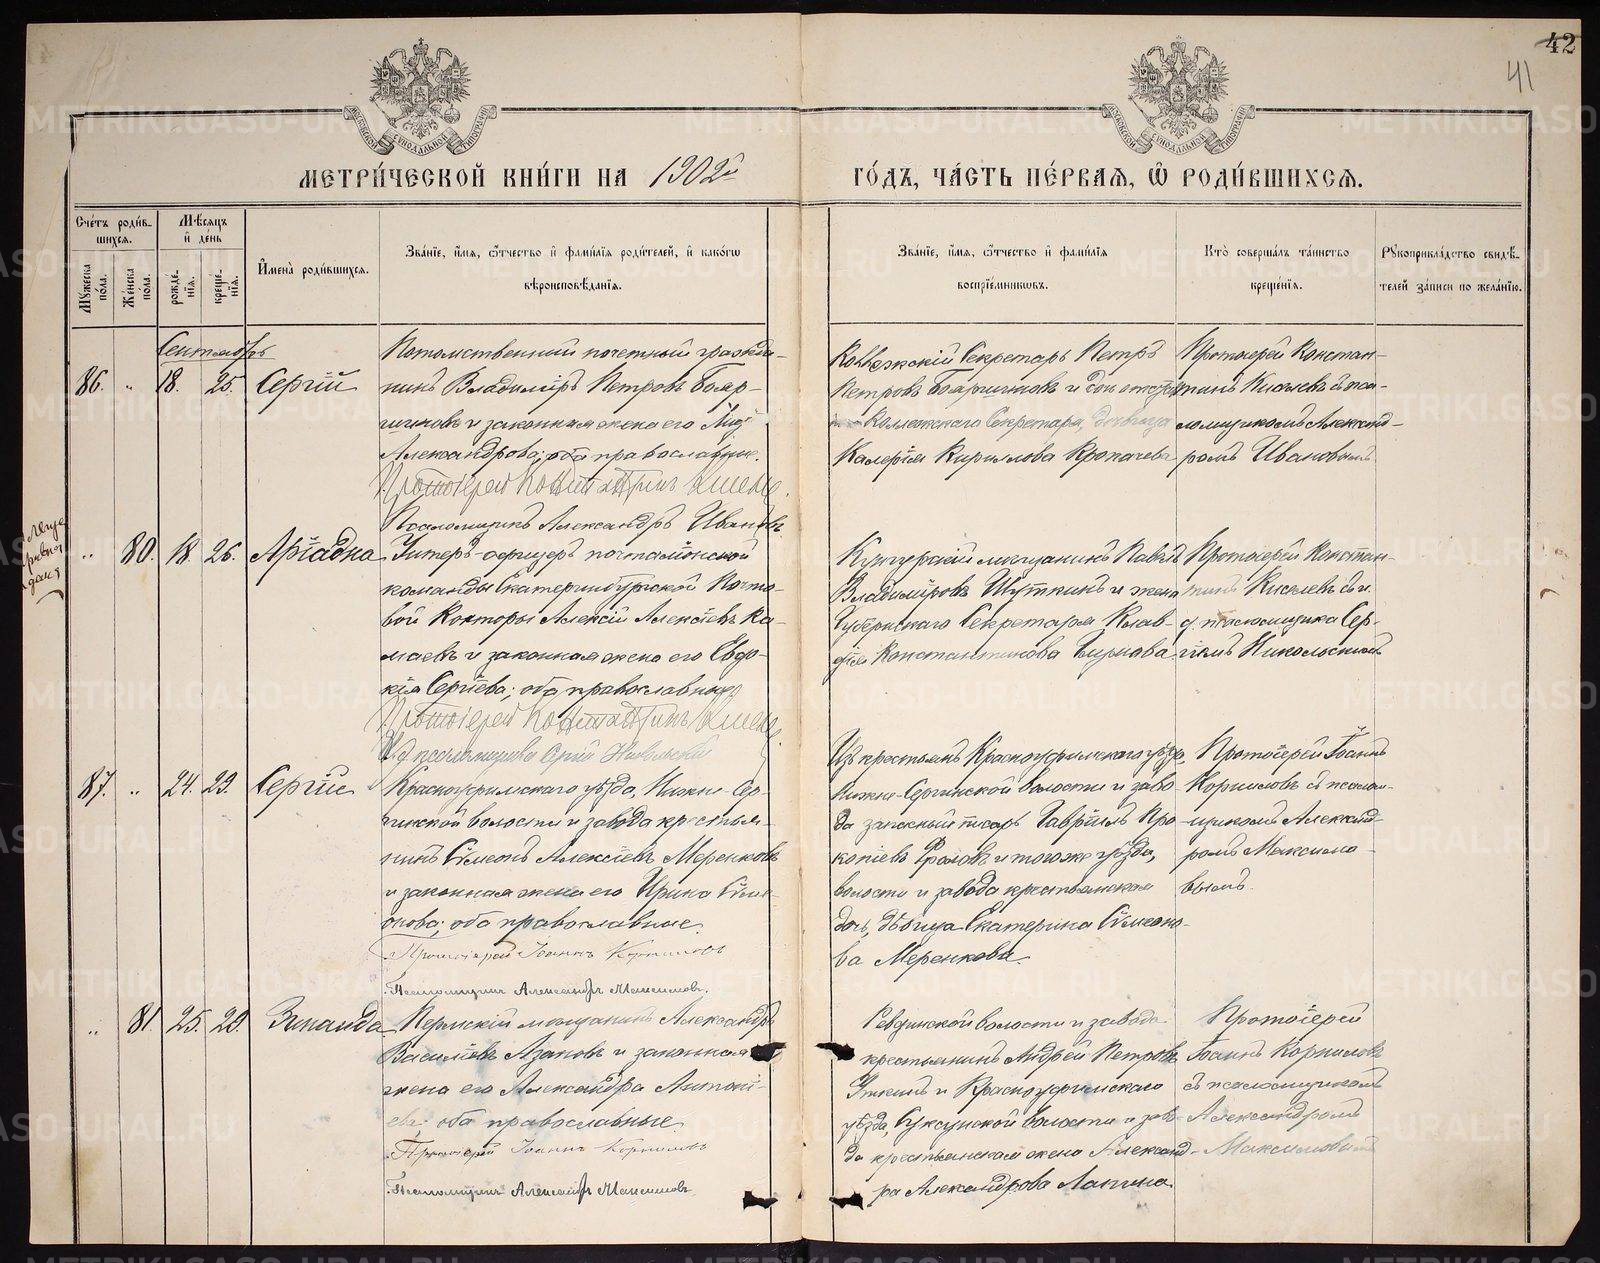 42
41
МЕТРИ́ЧЕСКОЙ КНИ́ГИ НА 1902й
ГО́ДЪ, ЧА́СТЬ ПЕ́РВАЯ, Ѡ РОДИ́ВШИХСЯ.
Сче́тъ роди́в-
шихся.
Мѣ́сяцъ
и҆ де́нь
Мꙋ́жеска по́ла.
Же́нска по́ла.
рожде́-
нїѧ.
креще́-
нїѧ.
И҆мена̀ роди́вшихсѧ.
Зва́нїе, и҆́мѧ, ѻ҆́тчество и҆ фами́лїѧ роди́телей, и҆ како́гѡ
вѣроисповѣ́данїѧ.
Зва́нїе, и҆́мѧ, ѻ҆́тчество и҆ фами́лїѧ
воспрїе́мниковъ.
Кто̀ соверша́лъ та́инство
креще́нїѧ.
Рꙋкоприкла́дство свидѣ́-
телей за́писи по жела́нїю.
Сентябрь
86. " 18. 25. Сергій
Потомственный почетный гражда-
нинъ Владиміръ Петровъ Бояр-
шиновъ и законная жена его
Александрова; оба православные.
Протоіерей Константинъ
Псаломщикъ Александръ Ивановъ
Коллежскій Секретарь Петръ
Петровъ Бояршиновъ и дочь
Коллежскаго Секретаря, девица
Калерія Кириллова Кропачева
Протоіерей Констан-
тинъ Киселевъ съ пса-
ломщикомъ Александ-
ромъ Ивановымъ.
" 80. 18. 26. Аріадна
Унтеръ-офицеръ почталіонской
команды Екатеринбургской Почто-
вой Конторы Алексій Алексіевъ Ка-
маевъ и законная жена его Евдо-
кія Сергіева; оба православные
Протоіерей Константинъ
И. д. псаломщика Сергій Никольскій
Кунгурскій мещанинъ Павелъ
Владиміровъ Шуткинъ и жена
Губернскаго Секретаря Клав-
дія Константинова Бирюкова
Протоіерей Констан-
тинъ Киселевъ съ и.
д. псаломщика Сер-
гіемъ Никольскимъ
87. " 24. 29. Сергій
Красноуфимскаго уѣзда, Нижне-Сер-
гинской волости и завода крестья-
нинъ Сѵмеонъ Алексіевъ Меренковъ
и законная жена его Ирина Сѵме-
онова; оба православные.
Протоіерей Іоаннъ Корниловъ
Псаломщикъ Александръ Максимовъ.
Изъ крестьянъ Красноуфимскаго уѣзда,
Нижне-Сергинской волости и заво-
да запасный писарь Гавріилъ Про-
копіевъ Фроловъ и того же уѣзда,
волости и завода крестьянская
дочь, дѣвица Екатерина Сѵмеоно-
ва Меренкова.
Протоіерей Іоаннъ
Корниловъ съ псалом-
щикомъ Александ-
ромъ Максимо-
вымъ.
" 81. 25. 29. Зинаида
Пермскій мещанинъ Александръ
Василіевъ Азановъ и законная
жена его Александра Антоні-
ева оба православные
Протоіерей Іоаннъ Корниловъ
Псаломщикъ Александръ Максимовъ
Ревдинской волости и завода
крестьянинъ Андрей Петровъ
Уткинъ и Красноуфимскаго
уѣзда, Суксунской волости и заво-
да крестьянская жена Александ-
ра Александрова Лапина
Протоіерей
Іоаннъ Корниловъ
съ псаломщикомъ
Александромъ
Максимовымъ
METRIKI.GASO-URAL.RU